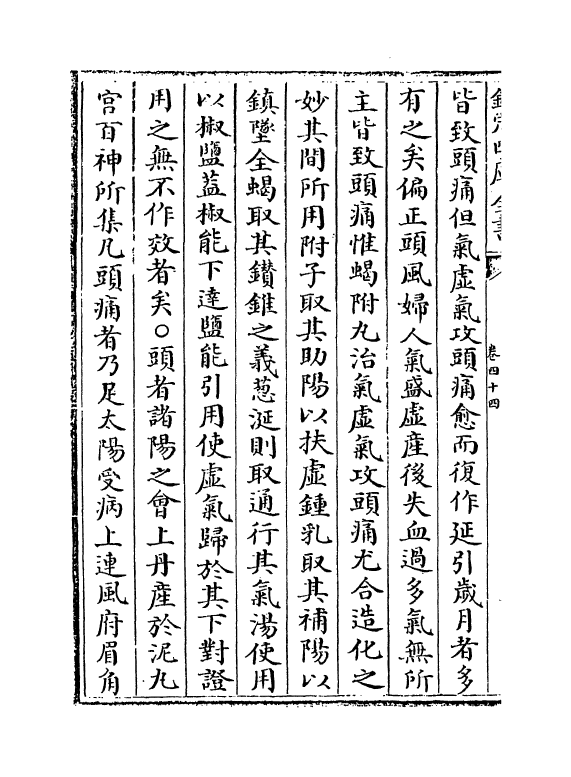 欽定四庫全書
卷四十四
皆致頭痛但氣虛氣攻頭痛愈而復作延引歲月者多
有之矣偏正頭風婦人氣盛虛産後失血過多氣無所
主皆致頭痛惟蝎附丸治氣虛氣攻頭痛尤合造化之
妙其間所用附子取其助陽以扶虛鍾乳取其補陽以
鎮墜全蝎取其鑽錐之義葱涎則取通行其氣湯使用
以椒鹽葢椒能下達鹽能引用使虛氣歸於其下對證
用之無不作效者矣○頭者諸陽之會上丹産於泥丸
宫百神所集凡頭痛者乃足太陽受病上連風府眉角